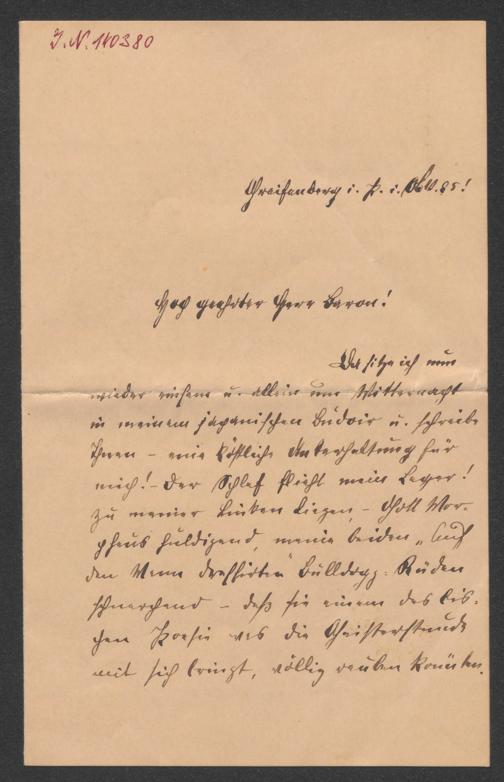 I.N. 140380
Greifenberg i. P. i. Okt. 85!
Hoch geehrter Herr Baron!
Da sitze ich nun
wieder einsam u. allein um Mitternacht
in meinem japanischen Budoir u. schreibe
Ihnen – eine köstliche Unterhaltung für
mich! – Der Schlaf flieht mein Lager!
Zu meiner Linken liegen – Gott Mor-
pheus huldigend, meine beiden „auf
den Mann dressirten" Bulldogg-Rüden
schnarchend – daß sie einem das bis-
chen Poesie was die Geisterstunde
mit sich bringt, völlig rauben könnten.